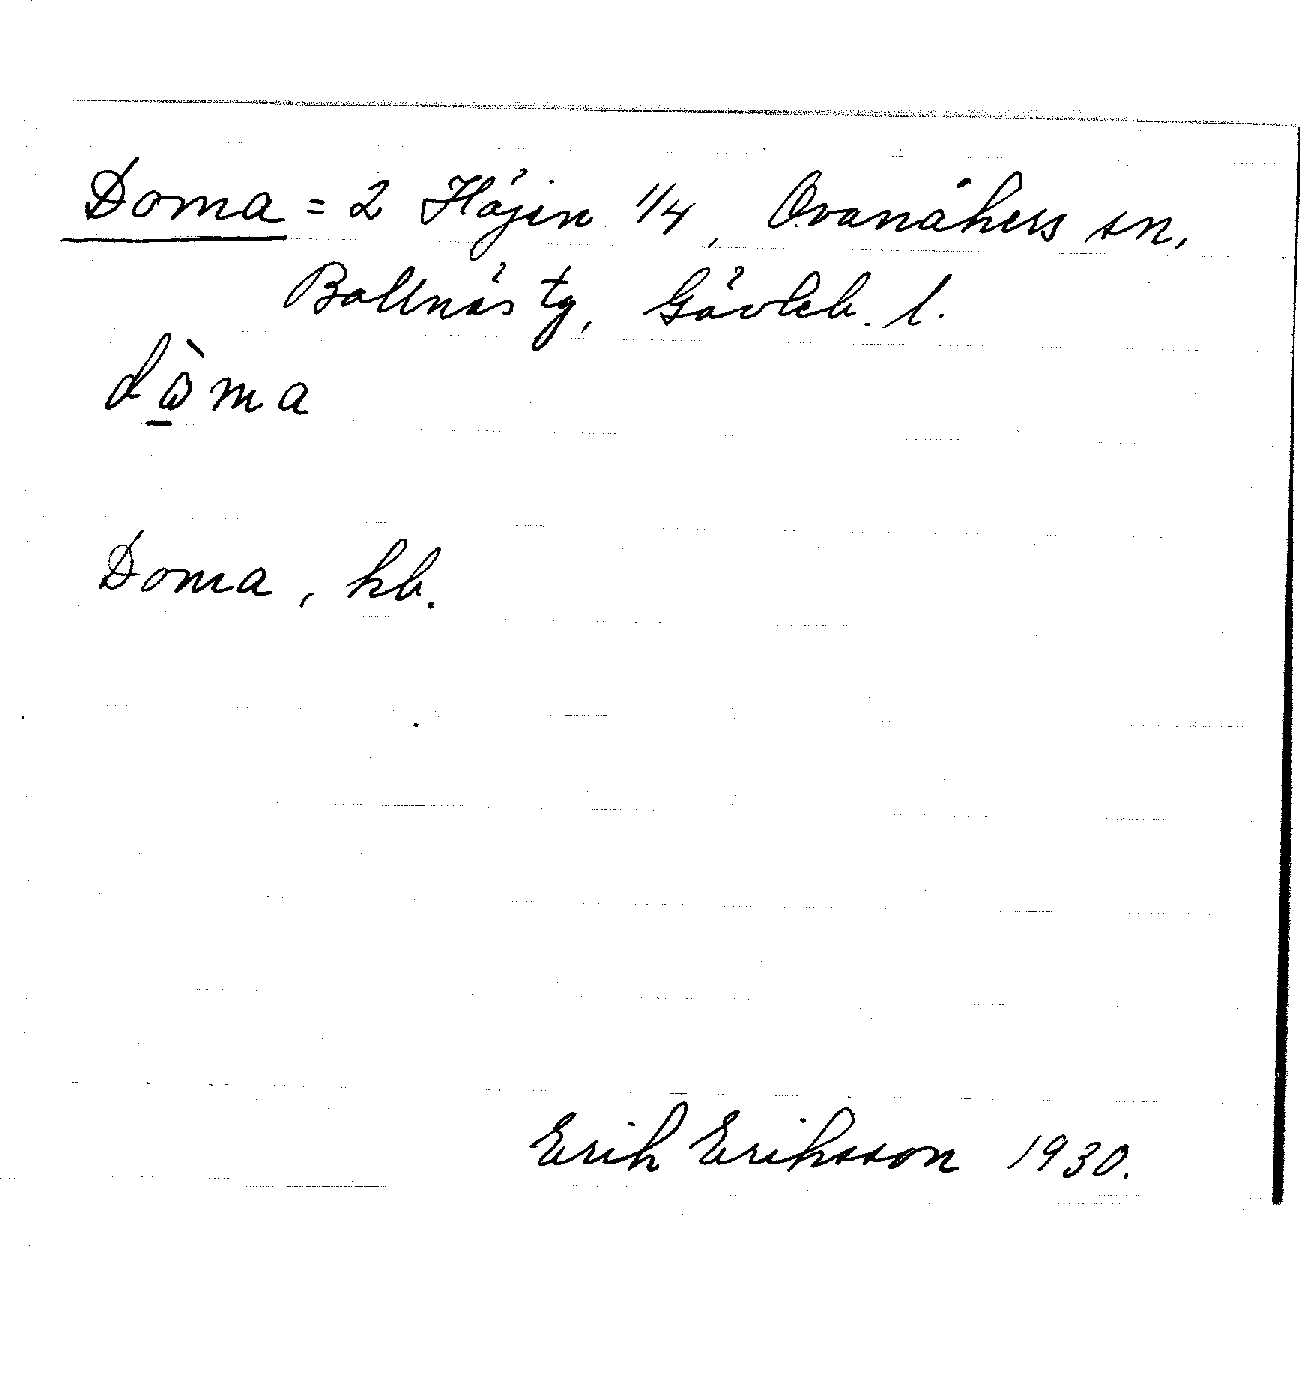 Doma = 2 Höjen 1/4, Ovanåkers sn,
Bollnäs tg, Gävleb. l.
dὼ̱ma
Doma, hb.
Erik Eriksson 1930.